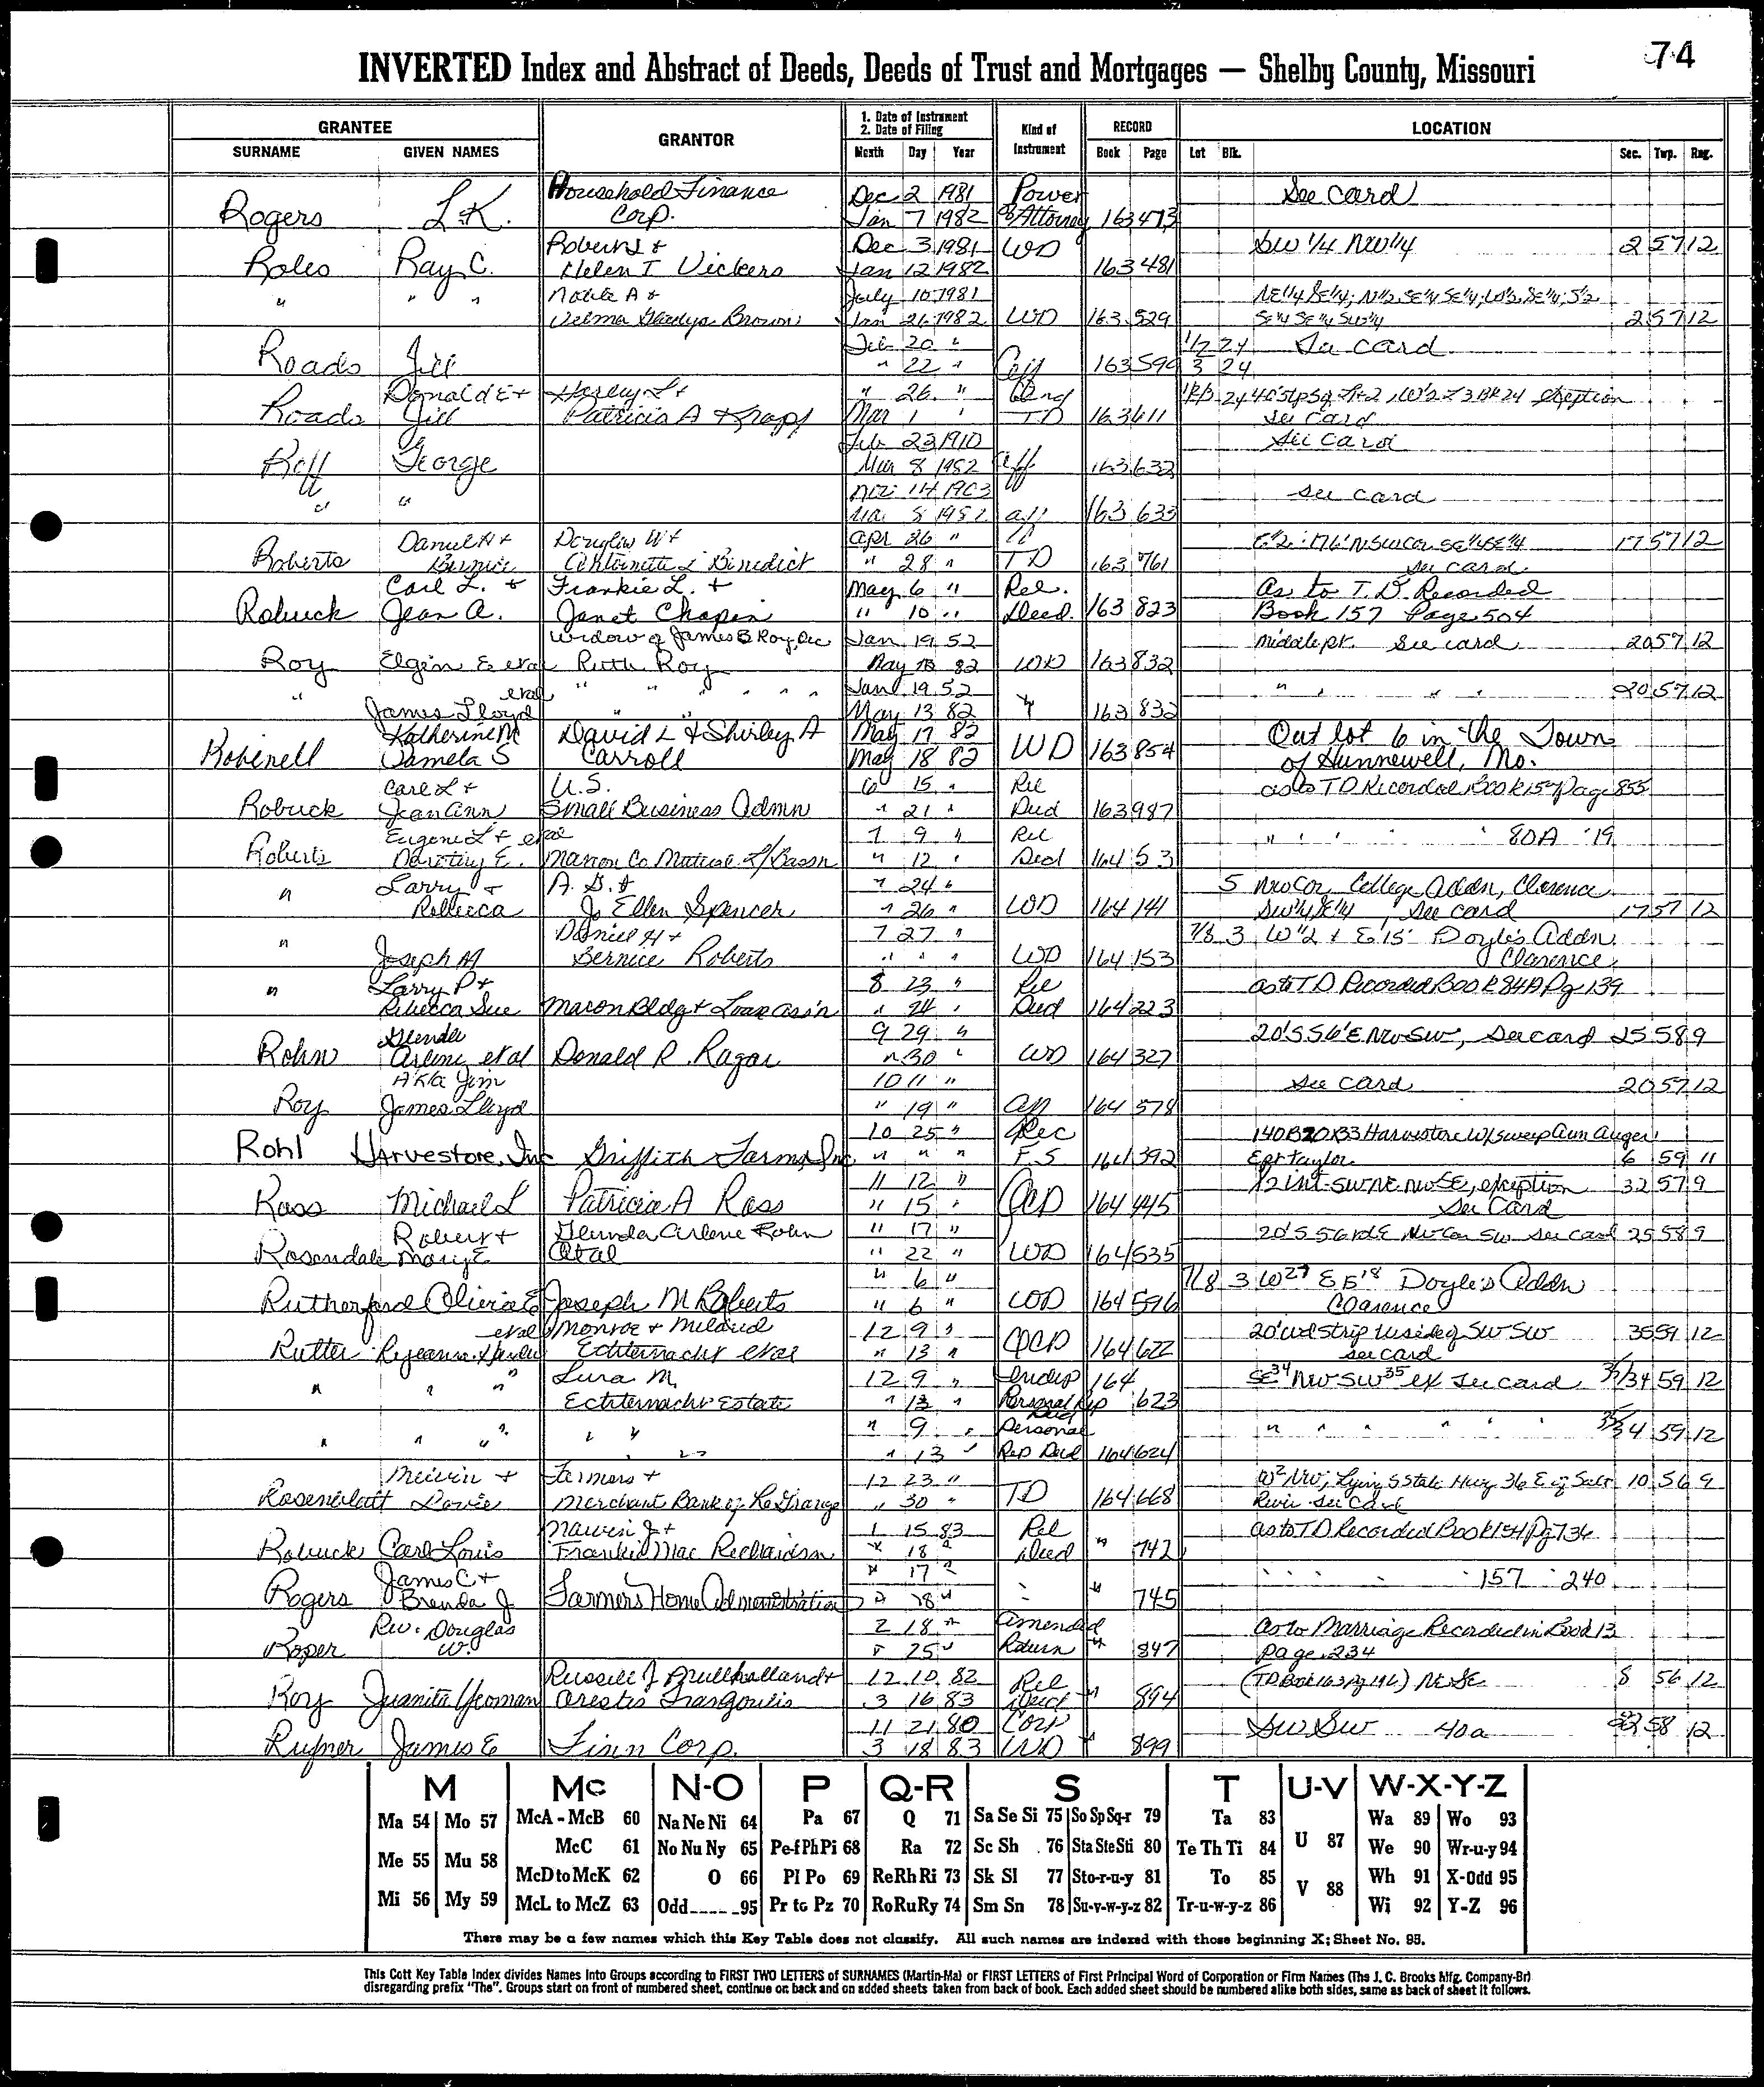 74
INVERTED Index and Abstract of Deeds, Deeds of Trust and Mortgages — Shelby County, Missouri
GRANTEE GRANTOR 1. Date of Instrument 2. Date of Filing Kind of Instrument RECORD LOCATION
SURNAME GIVEN NAMES Month Day Year Book Page Lot Blk. Sec. Twp. Rng.
Household Finance Dec 2 1981 Power See card
Rogers L K. Corp. Jan 7 1982 of Attorney 163 473
Robert L + Dec 3 1981 WD SW 1/4 NW 1/4 2 57 12
Roles Ray C. Helen T Vickers Jan 12 1982 163 481
" " " A + July 10 1981 NE 1/4 SE 1/4; N 1/2 SE 1/4 SE 1/4; W 1/2 SE 1/4; S 1/2
Velma Gladys Brown Jan 26 1982 WD 163 529 SE 1/4 SE 1/4 SW 1/4 2 57 12
Feb 20 " 1/2 24 See card
Roads Jill " 22 " Aff 163 599 3 24
Donald E + Harley L + " 26 " 24 Exception
Roads Jill Patricia A Mar 1 " TD 163 611 See card
Feb 23 1910 See card
Roff George Mar 8 1982 Aff 163 632
Nov 14 1903 see card
" " Mar 8 1982 aff 163 633
Daniel H + Douglas W + Apr 26 " SE 1/4 SE 1/4 17 57 12
Roberts Bernice Antoinette L Benedict " 28 " TD 163 761 see card
Carl L. + Frankie L. + May 6 " Rel. As to T. D. Recorded
Robuck Jean A. Janet Chapin " 10 " Deed. 163 823 Book 157 Page 504
Widow of James B Roy, Dec Jan 19 52 Middle pt. See card 20 57 12
Roy Elgin E etal Ruth Roy May 13 82 WD 163 832
" etal " " " " " Jan 19 52 " " " " 20 57 12
James Lloyd " " May 13 82 " 163 832
Katherine M David L + Shirley A May 17 82 Out lot 6 in the Town
Robinell Pamela S Carroll May 18 82 WD 163 854 of Hunnewell, Mo.
Carl L + U.S. 6 15 " Rel as to TD Recorded Book 157 Page 855
Robuck Jean Ann Small Business Admn " 21 " Deed 163 987
Eugene L + etal 7 9 " Rel " " " " 80A " 19
Roberts Dorothy E. Marion Co Mutual " 12 " Deed 164 53
Larry + A. G. + 7 24 " 5 NW Cor College Addn, Clarence
" Rebecca J. Ellen Spencer " 26 " WD 164 141 SW 1/4 SE 1/4, See card 17 57 12
Daniel H + 7 27 " 7/8 3 W 1/2 + E 15' Doyle's Addn
" Joseph M Bernice Roberts " " " WD 164 153 Clarence
Larry P + 8 23 " Rel as to TD Recorded Book 84A Pg 139
" Rebecca Sue Macon Bldg + Loan ass'n " 24 " Deed 164 223
Glenda 9 29 " 20'S 56'E NW SW, See card 25 58 9
Rohn Arlene etal Donald R. Ragar " 30 " WD 164 327
AKA Jim 10 11 " See card 20 57 12
Roy James Lloyd " 19 " 164 578
10 25 " Rec 140B 20B33 Harvestore W/sweep arm Auger
Rohl Harvestore, Inc Griffith Farms, Inc " " " F S 164 392 Taylor 6 59 11
11 12 " 1/2 int SW NE NW SE, exception 32 57 9
Ross Michael L Patricia A Ross " 15 " QCD 164 445 See Card
Robert + Glenda Arlene Rohn " 17 " 20'S 56 E NW Cor SW see card 25 58 9
Rosendale Mary E etal " 22 " WD 164 535
" 6 " 7/8 3 Doyle's Addn
Rutherford Olivia E Joseph M Roberts " 6 " WD 164 596 Clarence
etal Monroe + Mildred 12 9 " 20' wd strip W side of SW SW 35 59 12
Rutter Echternacht etal " 13 " QCD 164 622 see card
" " " Lura M. 12 9 " Indep 164 SE 34 NW SW 35 ex see card 35/34 59 12
Echternacht Estate " 13 " Personal Rep Deed 623
" " " " " " 9 " Personal " " " " " " 35/34 59 12
" 13 " Rep Deed 164 624
Melvin + Farmers + 12 23 " W 2 NW, Lying S State Hwy 36 E of Salt 10 56 9
Rosenblatt Dovie Merchant Bank of LaGrange " 30 " TD 164 668 River see card
Marvin J + 1 15 83 Rel as to TD Recorded Book 154 Pg 736
Robuck Carl Louis Frankie Mae Richardson " 18 " Deed " 742
James C + " 17 " " " " " 157 " 240
Rogers Brenda J Farmers Home Administration " 18 " " " 745
Rev. Douglas 2 18 " Amended as to Marriage Recorded in Book 13
Roper W. " 25 " Return " 847 page 234
Russell J Mullholland + 12 10 82 Rel (TD Book 163 Pg 196) NE SE 8 56 12
Roy Juanita Yeoman Arestis Frangoulis 3 16 83 Deed " 894
11 21 80 Corp SW SW 40a 58 12
Rufner James E Finn Corp. 3 18 83 WD " 899
M Mc N-O P Q-R S T U-V W-X-Y-Z
Ma 54 Mo 57 McA - McB 60 Na Ne Ni 64 Pa 67 Q 71 Sa Se Si 75 So Sp Sq-r 79 Ta 83 U 87 Wa 89 Wo 93
Me 55 Mu 58 McC 61 No Nu Ny 65 Pe-f Ph Pi 68 Ra 72 Sc Sh 76 Sta Ste Sti 80 Te Th Ti 84 We 90 Wr-u-y 94
McD to McK 62 O 66 Pl Po 69 Re Rh Ri 73 Sk Sl 77 Sto-r-u-y 81 To 85 V 88 Wh 91 X-Odd 95
Mi 56 My 59 McL to McZ 63 Odd_____95 Pr to Pz 70 Ro Ru Ry 74 Sm Sn 78 Su-v-w-y-z 82 Tr-u-w-y-z 86 Wi 92 Y-Z 96
There may be a few names which this Key Table does not classify. All such names are indexed with those beginning X; Sheet No. 95.
This Cott Key Table Index divides Names into Groups according to FIRST TWO LETTERS of SURNAMES (Martin-Ma) or FIRST LETTERS of First Principal Word of Corporation or Firm Names (The J. C. Brooks Mfg. Company-Br)
disregarding prefix "The". Groups start on front of numbered sheet, continue on back and on added sheets taken from back of book. Each added sheet should be numbered alike both sides, same as back of sheet it follows.